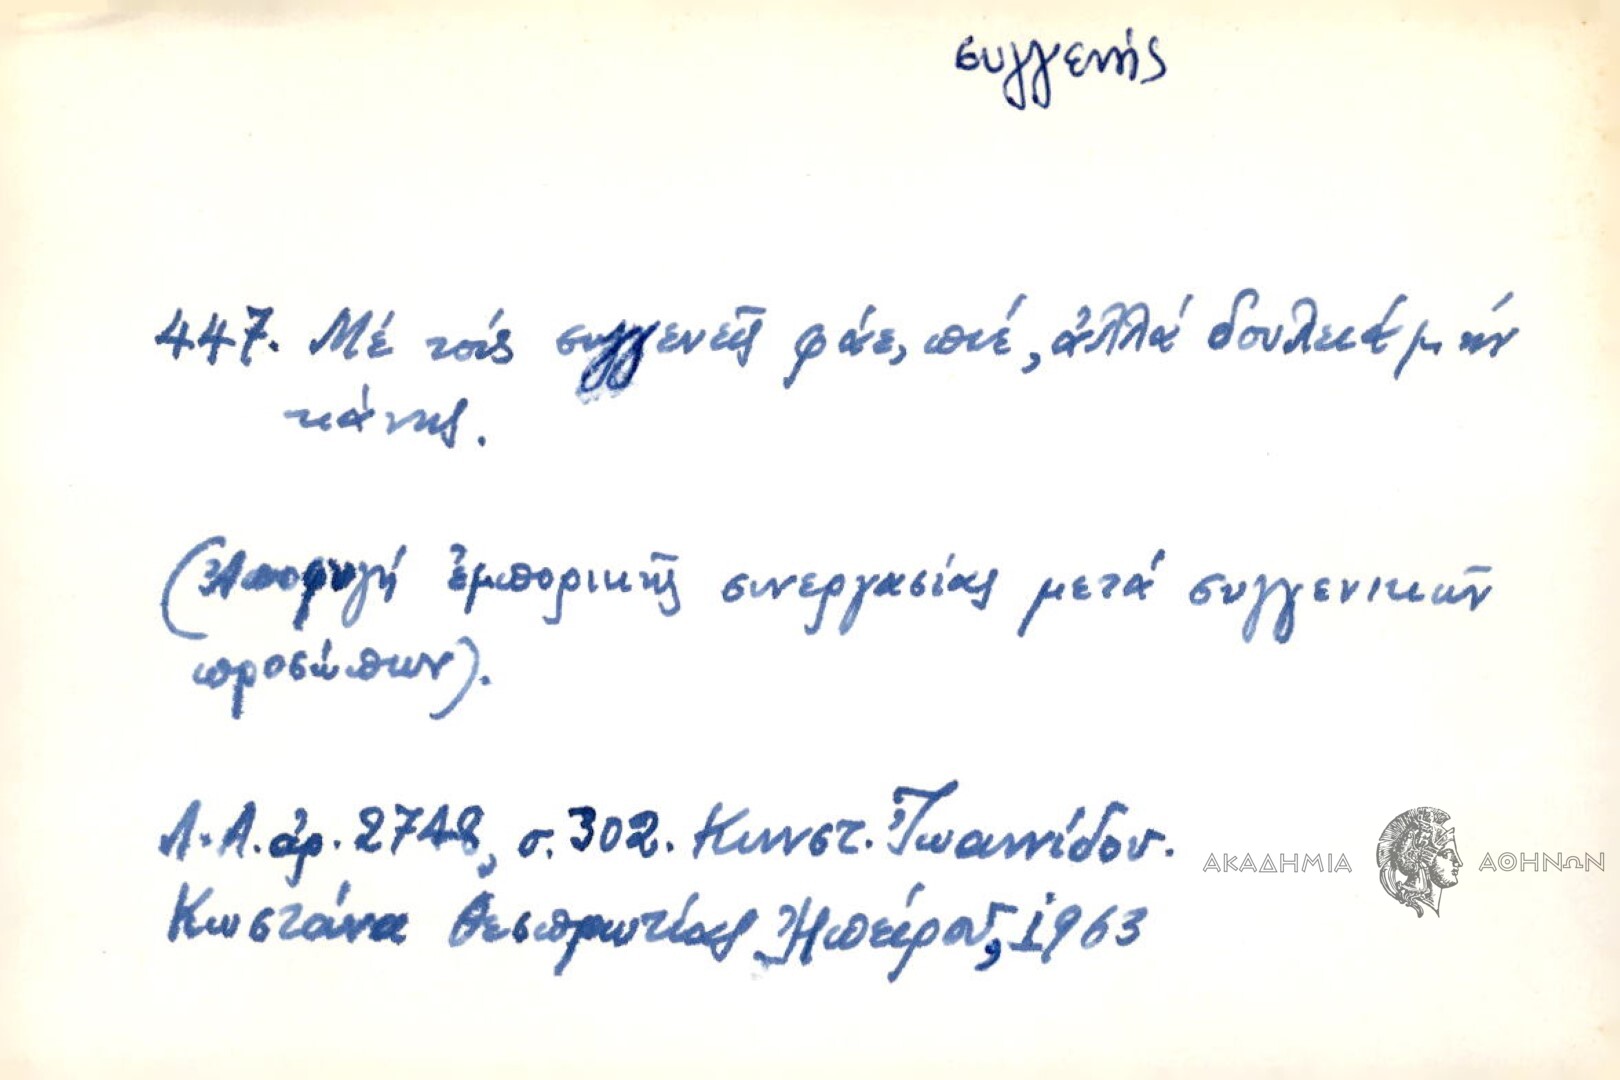 συγγενής
447. Μέ τούς συγγενεῖς φάε, πιέ, ἀλλά δουλειά μήν
κάνῃς.
(Ἀποφυγή ἐμπορικῆς συνεργασίας μετά συγγενικῶν
προσώπων).
Λ.Α. ἀρ. 2748, σ. 302. Κωνστ. Ἰωαννίδου.
Κωστάνα Θεσπρωτίας Ἠπείρου, 1963
ΑΚΑΔΗΜΙΑ ΑΘΗΝΩΝ